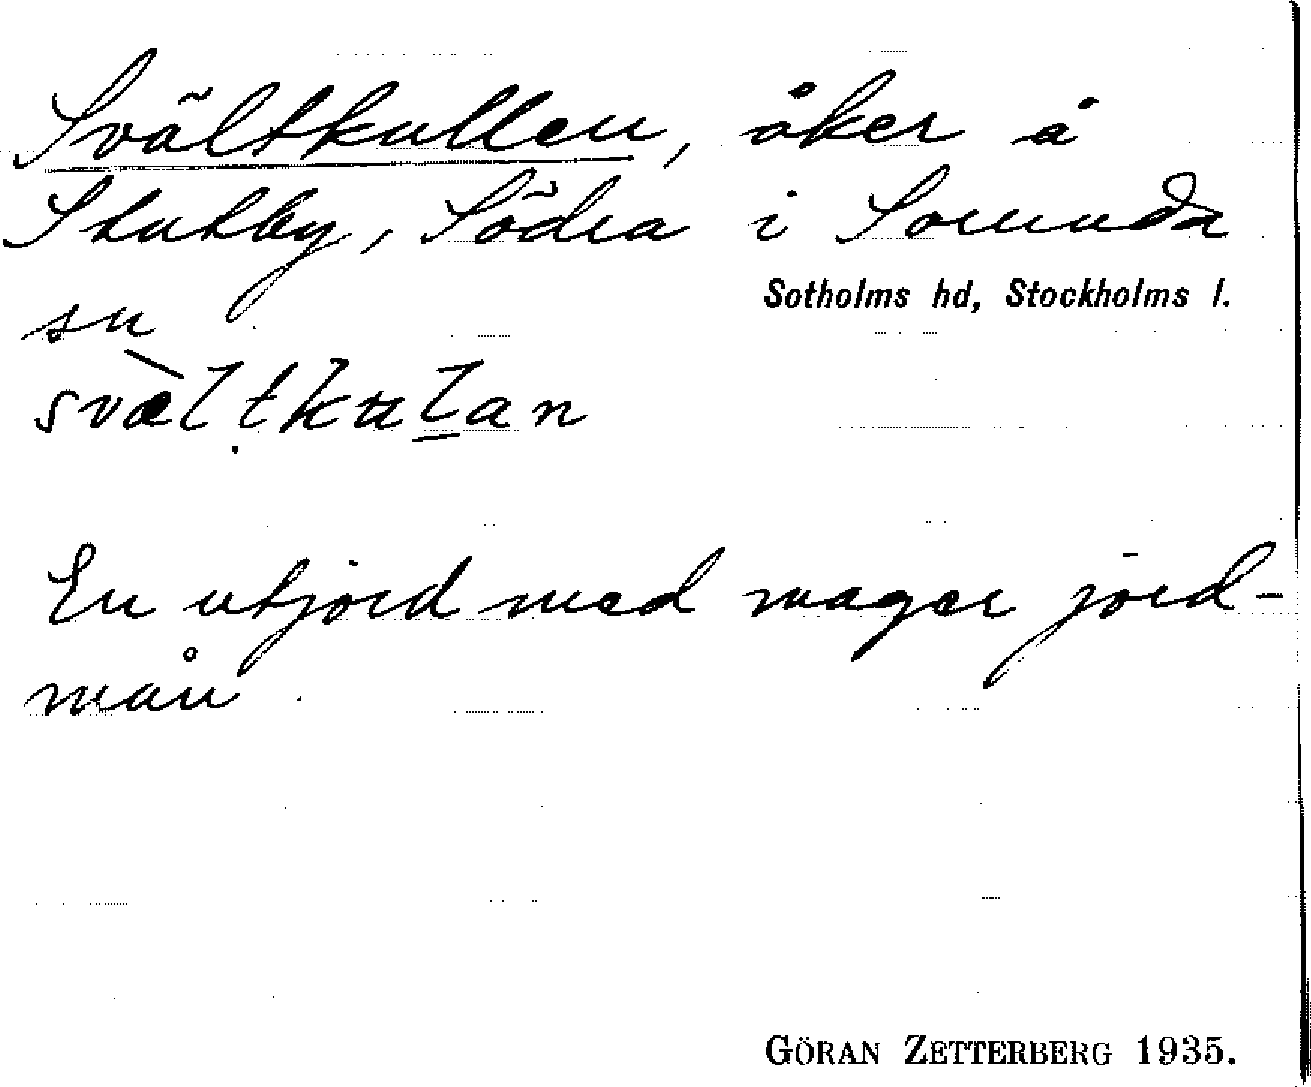 Svältkullen, åker å
Stutby, Södra i Sorunda
sn
Sotholms hd, Stockholms l.
svæ̀ltkulan
En utjord med mager jord-
mån.
GÖRAN ZETTERBERG 1935.